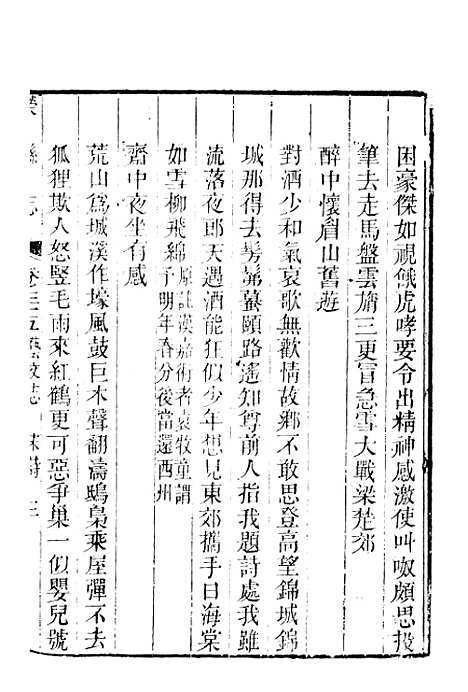 困豪傑如視餓虎哮要令出精神感激使叫呶頗思投
筆去走馬盤雲旓三更冒急雪大戰梁楚郊
醉中懷眉山舊遊
對酒少和氣哀歌無歡情故鄉不敢思登高望錦城錦
城那得去髣髴蟇頤路遙知尊前人指我題詩處我雖
流落夜郎天遇酒能狂似少年想見東郊攜手日海棠
如雪柳飛綿原註漢嘉術者袁牧童謂予明年春分後當還西州
齋中夜坐有感
荒山爲城溪作壕風鼓巨木聲翻濤鴟梟乘屋彈不去
狐狸欺人怒豎毛雨來紅鶴更可惡爭巢一似嬰兒號
縣志 卷三十五 藝文志 三